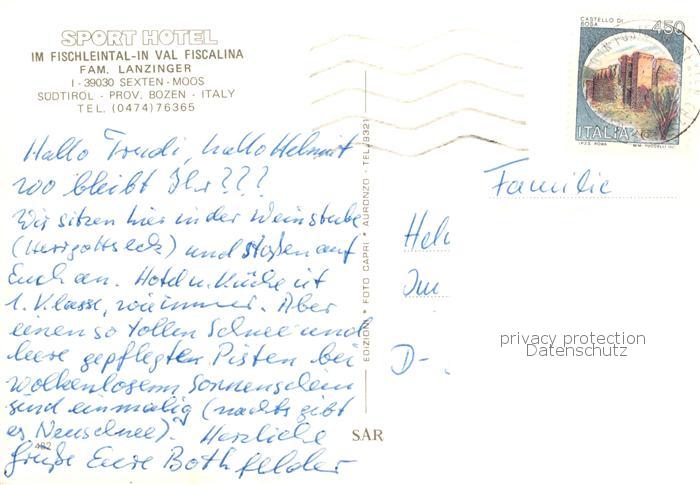 SPORT HOTEL
IM FISCHLEINTAL-IN VAL FISCALINA
FAM. LANZINGER
I - 39030 SEXTEN - MOOS
SÜDTIROL - PROV. BOZEN - ITALY
TEL. (0474) 76365
Hallo Trudi, hallo Helmut
wo bleibt Ihr???
Wir sitzen hier in der Weinstube
(Herrgottseck) und stoßen auf
Euch an. Hotel u. Küche ist
1. Klasse, wie immer. Aber
einen so tollen Schnee und
leere gepflegten Pisten bei
wolkenlosem Sonnenschein
sind einmalig (nachts gibt
es Neuschnee). Herzliche
482
Grüße Eure Bothfelder
EDIZIONI * FOTO CAPRI * AURONZO - TEL. 9321
SAR
CASTELLO DI
ROSA
450
ITALIA
I.P.Z.S. ROMA
Familie
Hel
Im
D-
privacy protection
Datenschutz